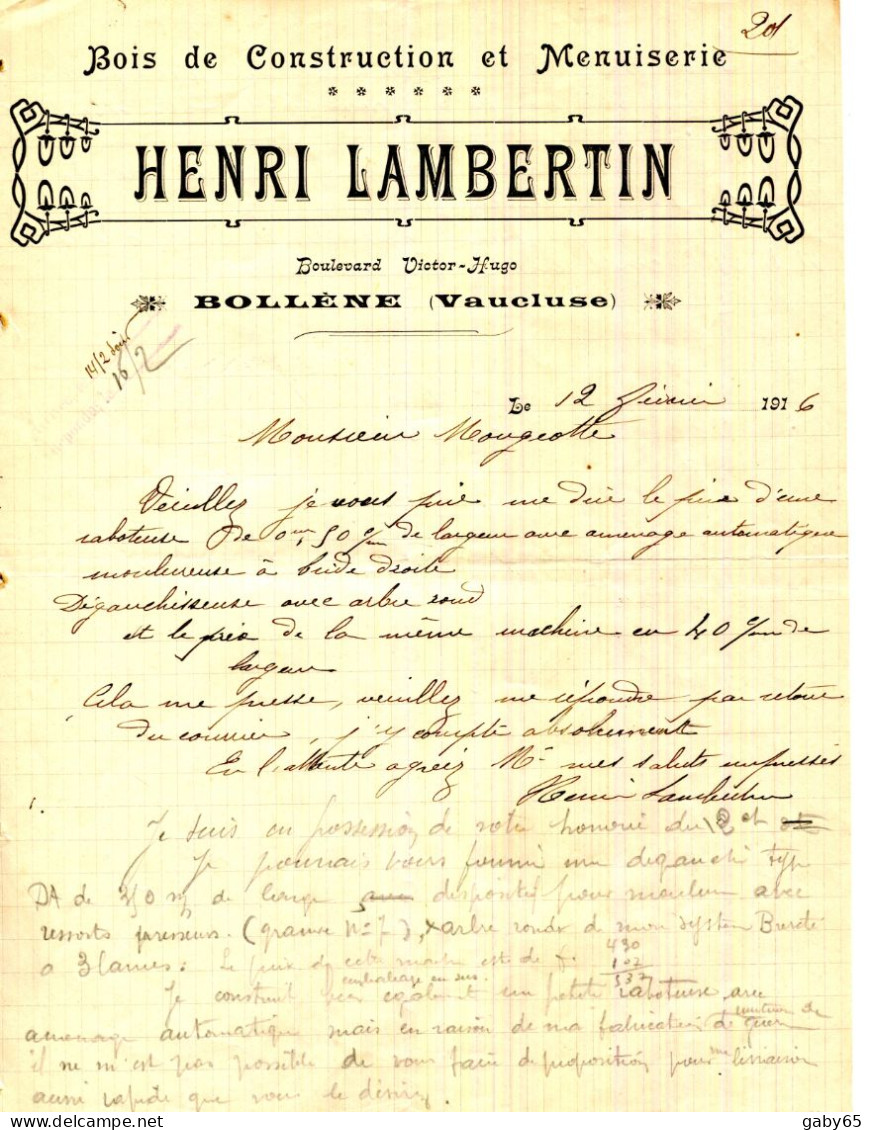 201
Bois de Construction et Menuiserie
HENRI LAMBERTIN
Boulevard Victor-Hugo
BOLLÈNE (Vaucluse)
14/2
16/2
Le 12 février 1916
Monsieur Mougeotte
Veuillez je vous prie me dire le prix d'une
raboteuse De 0m,50 c/m de largeur avec amenage automatique
moulureuse à bride droite
Dégauchisseuse avec arbre rond
et le prix de la même machine en 40 c/m de
largeur
Cela me presse, veuillez me répondre par retour
du courrier, j'y compte absolument
En l'attente agréez Mr mes saluts empressés
Henri Lambertin
Je suis en possession de votre honoré du 12 ct
Je pourrais vous fournir une degauch type
DA de 350 de large disposée pour moulurer avec
ressorts presseurs. (gravure No 7), arbre rond de mon système Breveté
a 3 lames: Le prix de cette machine est de f. 430
102
532
emballage en sus.
Je construit bien également une petite raboteuse avec
amenage automatique mais en raison de ma fabrication de guerre
il ne m'est pas possible de vous faire de proposition pour une livraison
aussi rapide que vous le désirez.
gaby65